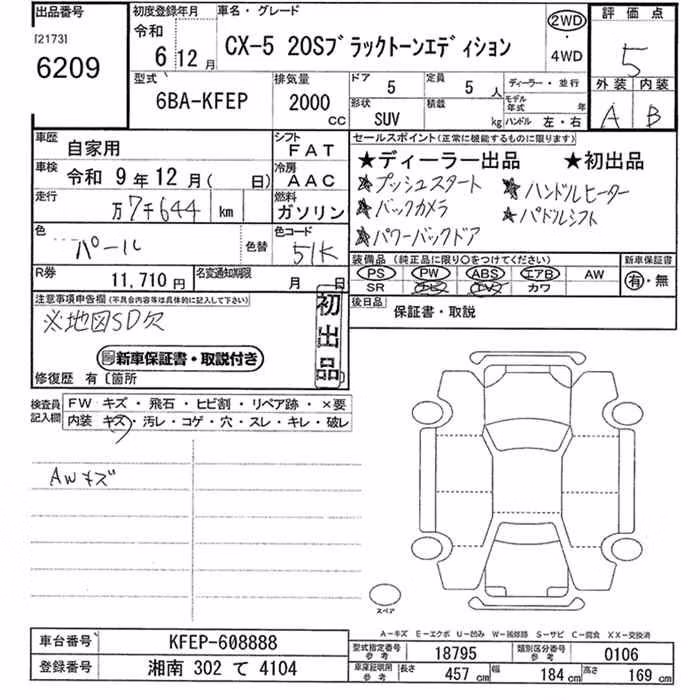 出品番号
[2173]
6209
初度登録年月
令和
6 12 月
車名・グレード
CX-5 20Sブラックトーンエディション
2WD
・
4WD
評価点
5
外装 内装
A B
型式
6BA-KFEP
排気量
2000
CC
ドア
5
定員
5 人
ディーラー・並行
形状
SUV
積載
kg
モデル年式 年
ハンドル 左・右
車歴
自家用
シフト
FAT
車検
令和 9 年 12 月 ( 日)
冷房
AAC
走行
万7千644 km
燃料
ガソリン
色
パール
色替
色コード
51K
R券
11,710 円
名変通知期限
月 日
セールスポイント(正常に機能するものに限ります)
★ディーラー出品 ★初出品
★プッシュスタート ★ハンドルヒーター
★バックカメラ ★パドルシフト
★パワーバックドア
装備品(純正品に限り○をつけてください)
PS PW ABS エアB AW
SR ナビ TV カワ
新車保証書
有・無
後日品
保証書・取説
注意事項申告欄(不具合内容等は具体的に記入して下さい)
※地図SD欠
初出品
新車保証書・取説付き
修復歴 有〔箇所
検査員記入欄
FW キズ・飛石・ヒビ割・リペア跡・×要
内装 キズ・汚レ・コゲ・穴・スレ・キレ・破レ
AWキズ
スペア
A-キズ E-エクボ U-凹み W-補修跡 S-サビ C-腐食 XX-交換済
車台番号
KFEP-608888
登録番号
湘南 302 て 4104
型式指定番号
参考
18795
類別区分番号
参考
0106
車庫証明用
参考
長さ
457 cm
幅
184 cm
高さ
169 cm